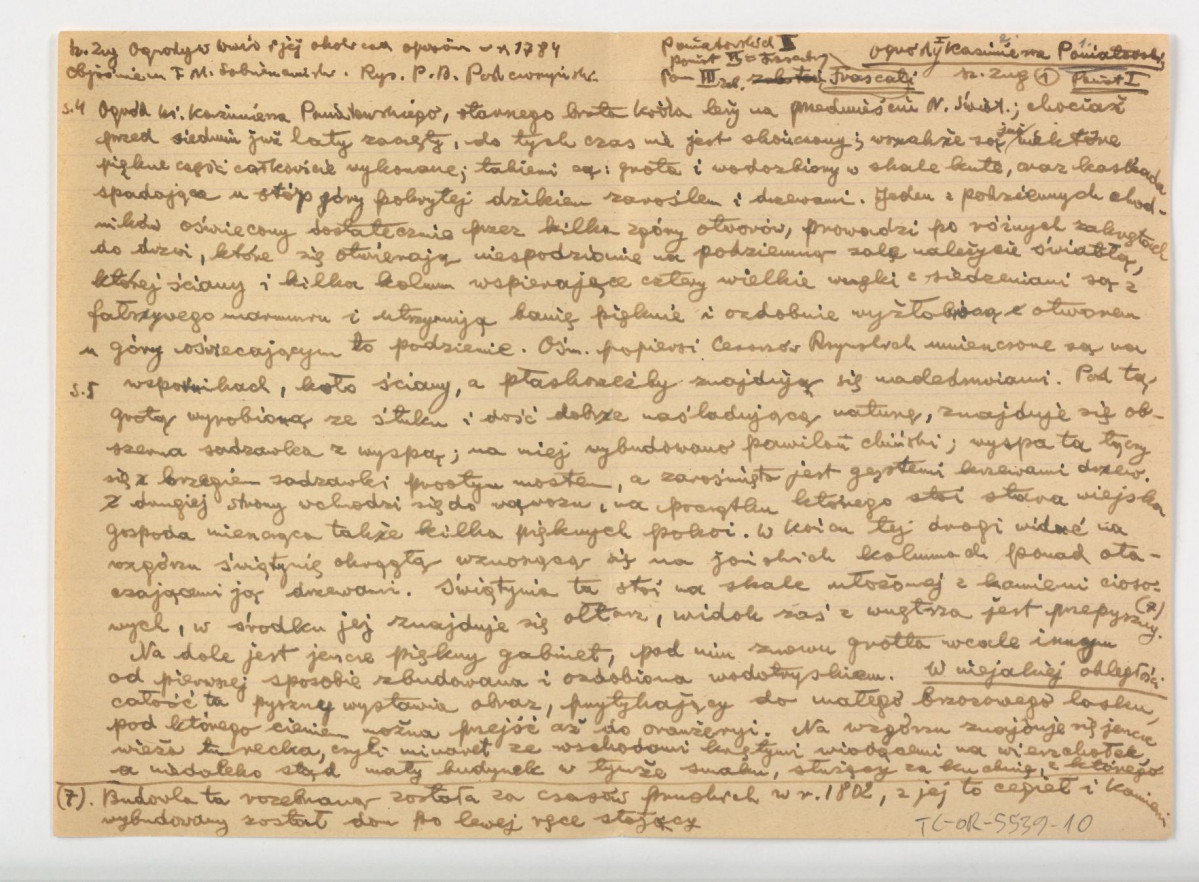 Sz. Zug Ogrody w Warsz i jej okolicach opisane w r 1784
Objaśnienia F. M. Sobieszczański. Rys. P. B. Podczaszyński.
Poniatowskich II
Poniat II = Frascati
Pon III zob. Frascati
ogrody Kazimierza Poniatowski
Sz. Zug (1) Poniat I
s.4 Ogród ks. Kazimierza Poniatowskiego, starszego brata króla leży na przedmieściu N. Świat.; chociaż
przed siedmiu już laty zaczęty, do tych czas nie jest skończony; wszakże są już niektóre
piękne części całkowicie wykonane; takiemi są: grota i wodozbiory w skale kute, oraz kaskada
spadająca u stóp góry pokrytej dzikiem zaroślem i drzewami. Jeden z podziemnych chod-
ników oświecony dostatecznie przez kilka z góry otworów, prowadzi po różnych zakrętach
do drzwi, które się otwierają niespodzianie na podziemną salę należycie światłą,
której ściany i kilka kolumn wspierające cztery wielkie wnęki z siedzeniami są z
fałszywego marmuru i utrzymują banię pięknie i ozdobnie wyżłobioną z otworem
u góry oświecającym to podziemie. Ośm. popiersi Cesarzów Rzymskich umieszczone są na
s.5 wspornikach, koło ściany, a płaskorzeźby znajdują się nadedrzwiami. Pod tą
grotą wyrobioną ze stuku i dość dobrze naśladującą naturę, znajduje się ob-
szerna sadzawka z wyspą; na niej wybudowano pawilon chiński; wyspa ta łączy
się z brzegiem sadzawki prostym mostem, a zarośnięta jest gęstemi krzewami drzew.
Z drugiej strony wchodzi się do wąwozu, na początku którego stoi stara wiejska
gospoda mieszcząca także kilka pięknych pokoi. W końcu tej drogi widać na
wzgórzu świątynię okrągłą wznoszącą się na jońskich kolumnach ponad ota-
czającemi ją drzewami. Świątynia ta stoi na skale ułożonej z kamieni cioso-
wych, w środku jej znajduje się ołtarz, widok zaś z wnętrza jest przepyszny. (7)
Na dole jest jeszcze piękny gabinet, pod nim znowu grotta wcale innym
od pierwszej sposobie zbudowana i ozdobiona wodotryskiem. W niejakiej odległości
całość ta pyszny wystawia obraz, przytykający do małego brzozowego lasku,
pod którego cieniem można przejść aż do oranżeryi. Na wzgórzu znajduje się jeszcze
wieża turecka, czyli minaret ze wschodami krętymi wiodącemi na wierzchołek
a niedaleko stąd mały budynek w tymże smaku, służący za kuchnię, z którego
(7). Budowla ta rozebraną została za czasów pruskich w r. 1802, z jej to cegieł i kamieni
wybudowany został dom po lewej ręce stojący
TC-OR-5539-10